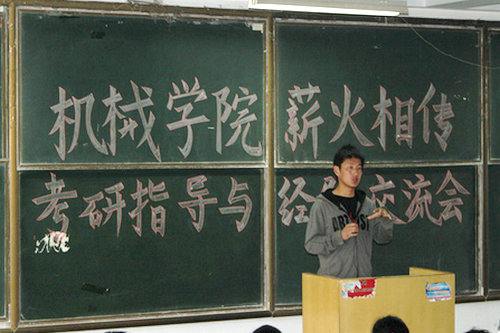 机械学院薪火相传
考研指导与经验交流会